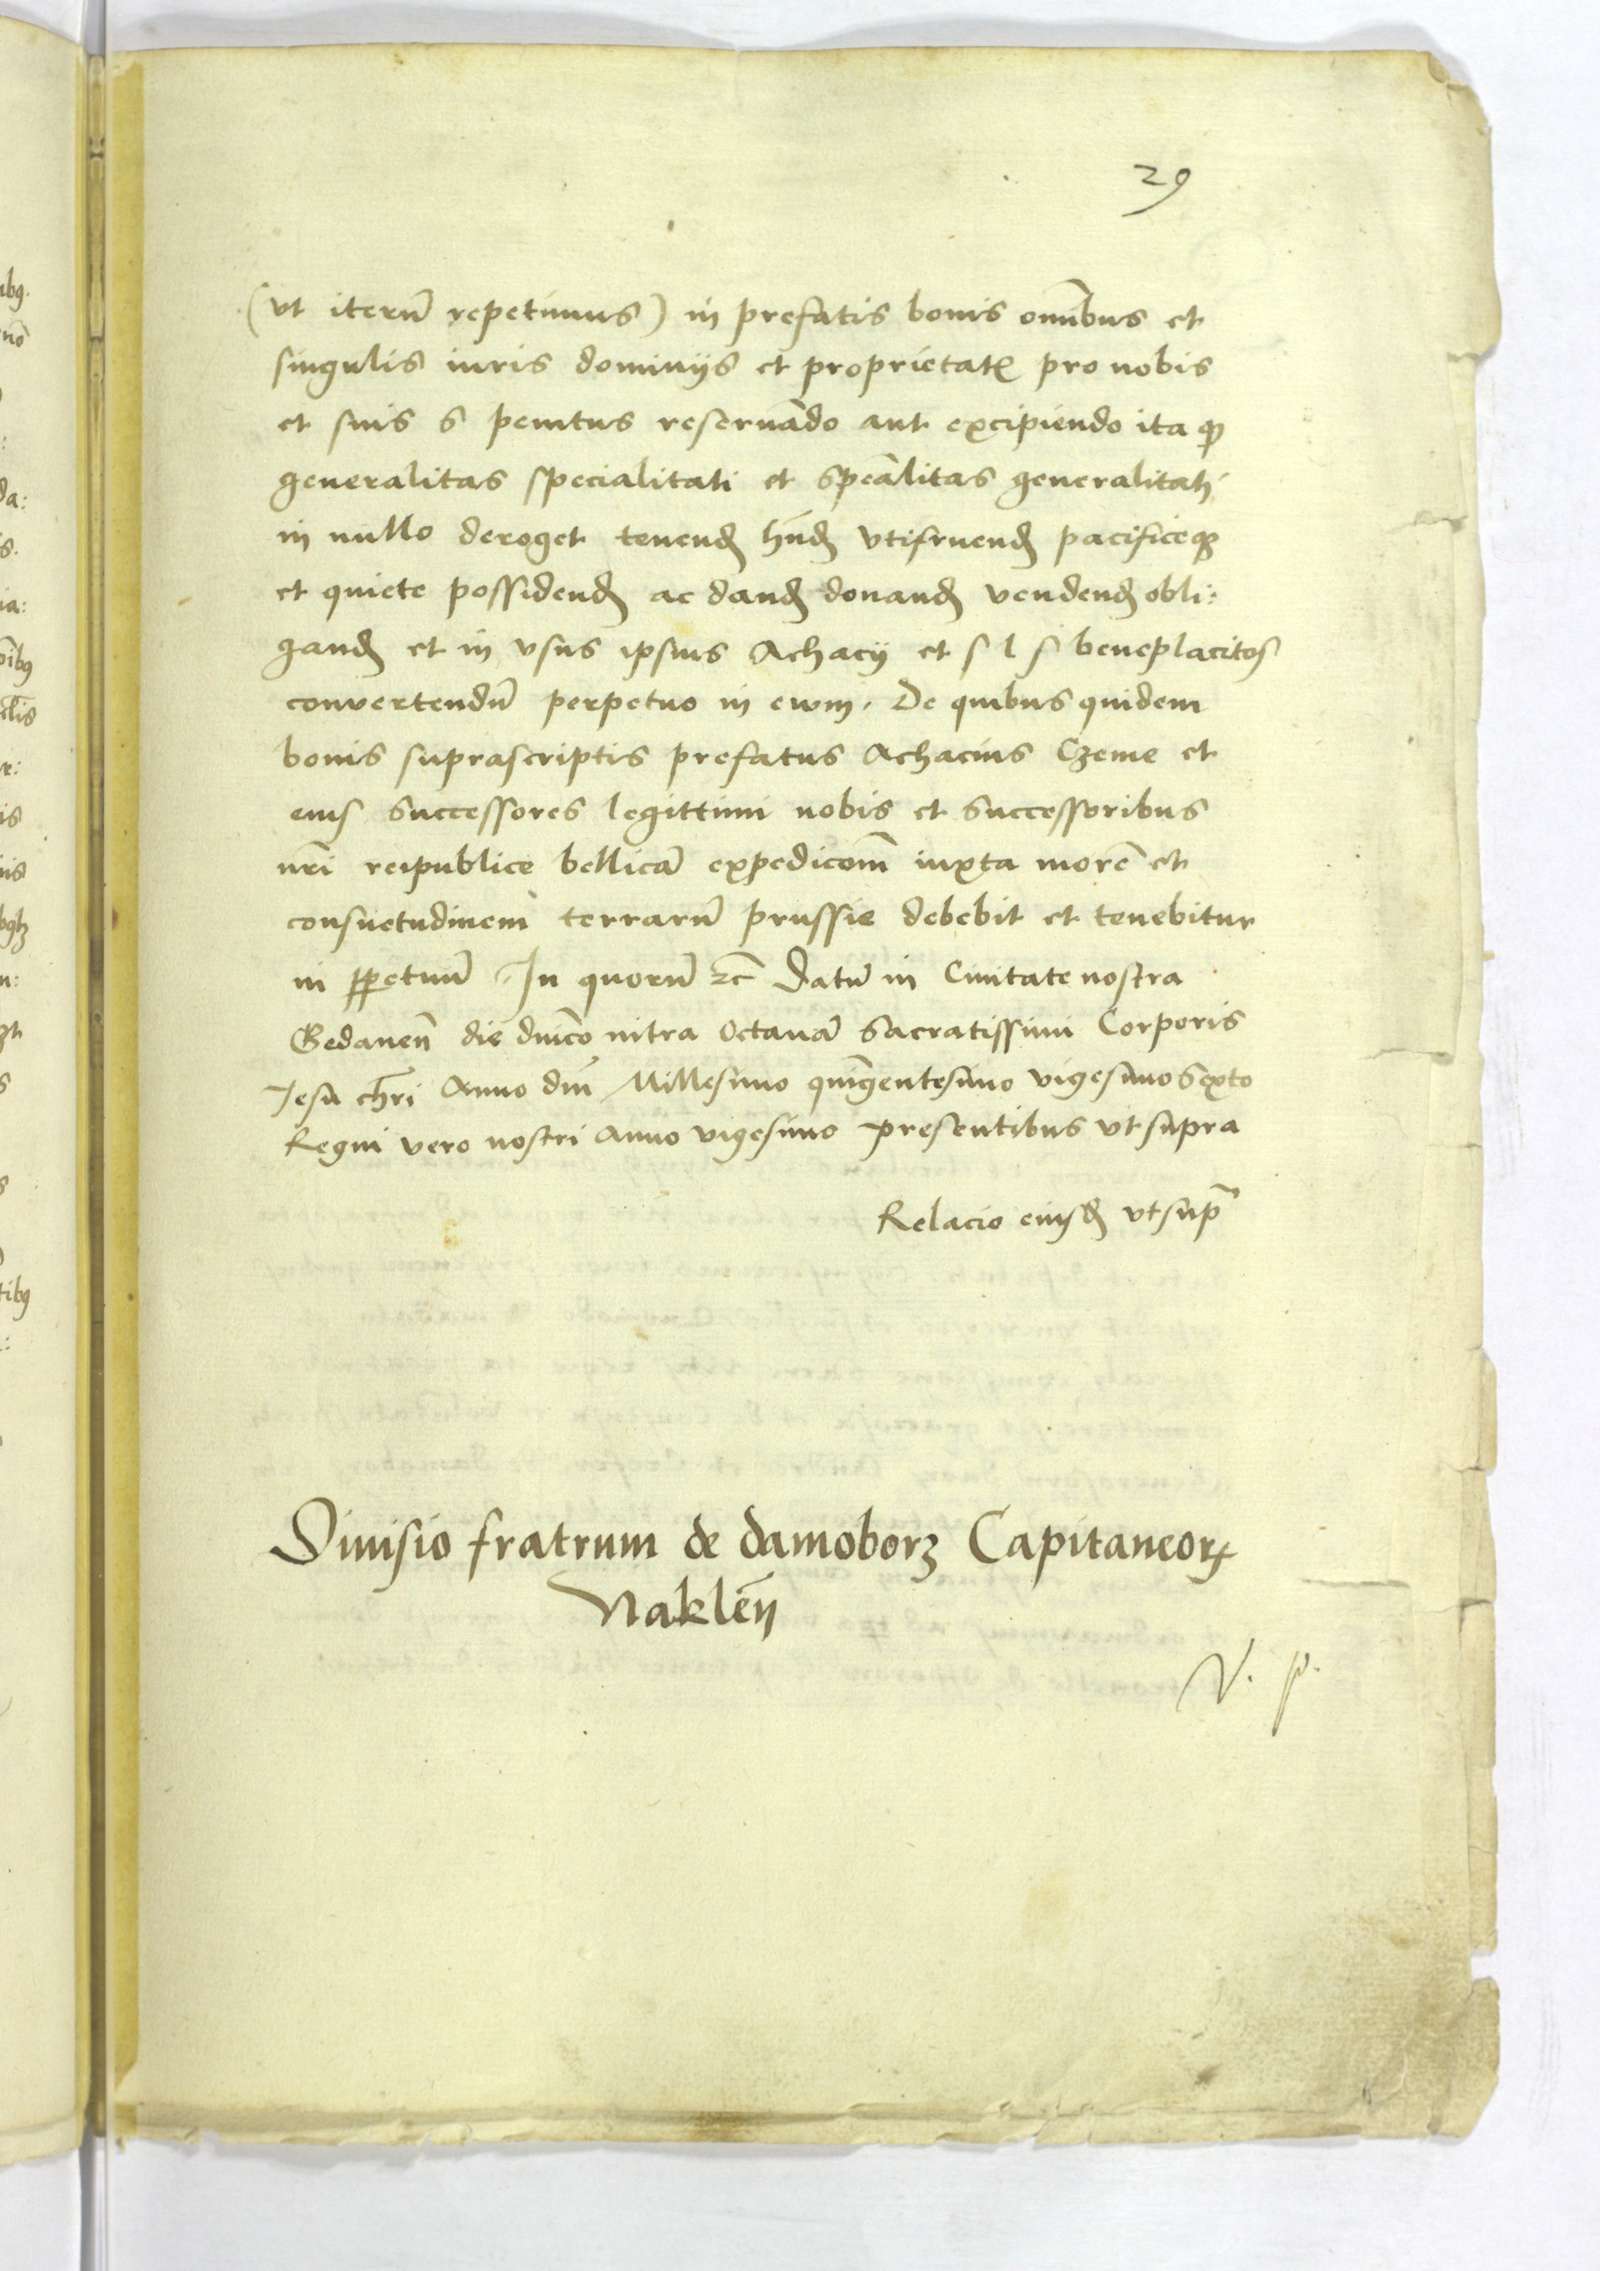 29
(vt iterū repetimus) in prefatis bonis om̄ibus et
singulis iuris dominijs et proprietatꝭ pro nobis
et suis s penitus reseruādo aut excipiendo ita ꝙ
generalitas specialitati et spēalitas generalitati
in nullo deroget tenendꝫ hn̄dꝫ vtifruendꝫ pacificeqꝫ
et quiete possidendꝫ ac dandꝫ donandꝫ vendendꝫ obli:
gandꝫ et in vsus ipsius Achacij et s l s beneplacitos
convertendū perpetuo in ewm. De quibus quidem
bonis suprascriptis prefatus Achacius Czeme et
eius successores legittimi nobis et successoribus
nr̄i reipublice bellicā expedicōm iuxta morē et
consuetudinem terrarū prussie debebit et tenebitur
in ꝑpetuū. In quorū ꝛc̄ Datū in Ciuitate nostra
Gedanen̄ die dn̄ico infra Octauā Sacratissimi Corporis
Jesu chr̄i Anno dn̄i Millesimo quīgentesimo vigesimo sexto
Regni vero nostri Anno vigesimo presentibus vt supra
Relacio eiusdꝫ vt sup̄
Diuisio fratrum de damoborz Capitaneorꝝ
Naklēn
V. p.